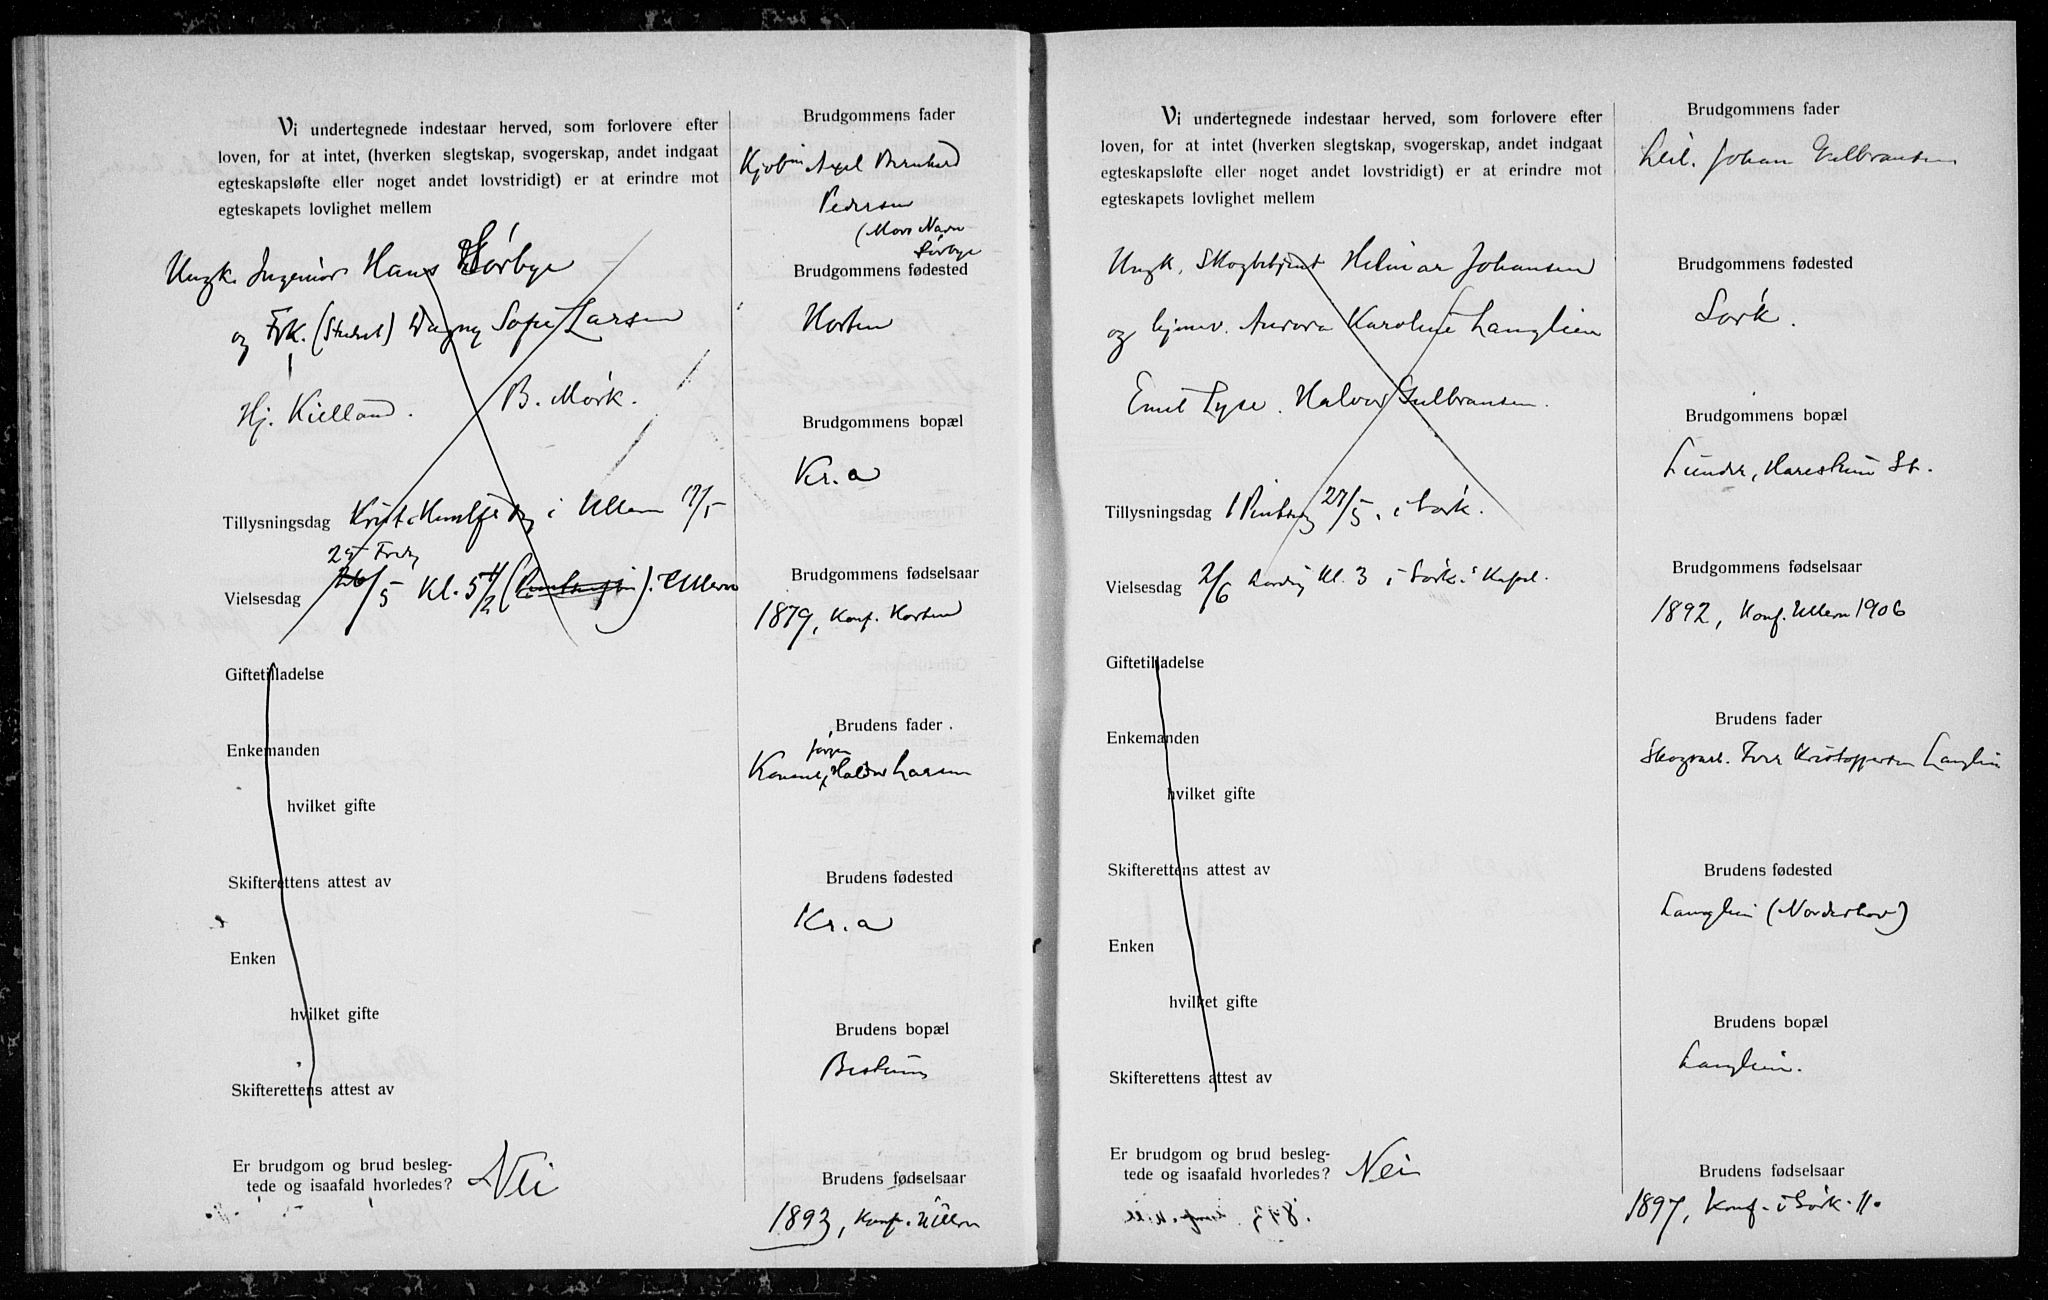 Vi undertegnede indestaar herved, som forlovere efter
loven, for at intet, (hverken slegtskap, svogerskap, andet indgaat
egteskapsløfte eller noget andet lovstridigt) er at erindre mot
egteskapets lovlighet mellem
Ungk. Ingeniør Hans Sørbye
og Frk. (Student) Dagny Sofie Larsen
Hj. Kielland. B. Mørk.
Tillysningsdag Krist. Himlf. dag i Ullern 17/5
25 Freda
Vielsesdag 26/5 Kl. 5 1/2 Ullern
Giftetilladelse
Enkemanden
hvilket gifte
Skifterettens attest av
Enken
hvilket gifte
Skifterettens attest av
Er brudgom og brud besleg-
tede og isaafald hvorledes? Nei
Brudgommens fader
Kjøbm Axel Bernhard
Pedersen
(Mors Navn
Sørbye
Brudgommens fødested
Horten
Brudgommens bopæl
Kr.a
Brudgommens fødselsaar
1879, Konf. Horten
Brudens fader
Jørgen
Halvor Larsen
Brudens fødested
Kr.a
Brudens bopæl
Bestum
Brudens fødselsaar
1893, Konf. Ullern
Vi undertegnede indestaar herved, som forlovere efter
loven, for at intet (hverken slegtskap, svogerskap, andet indgaat
egteskapsløfte eller noget andet lovstridigt) er at erindre mot
egteskapets lovlighet mellem
Ungk. Skogbetjent Helmar Johansen
og hjemv. Aurora Karoline Langlien
Emil Lyse. Halvor Gulbransen.
Tillysningsdag 1 Pintsdag 27/5. i Sørk.
Vielsesdag 2/6 Lørdag Kl. 3 i Sørk. Kapel.
Giftetilladelse
Enkemanden
hvilket gifte
Skifterettens attest av
Enken
hvilket gifte
Skifterettens attest av
Er brudgom og brud besleg-
tede og isaafald hvorledes? Nei
Brudgommens fader
Leil. Johan Gulbransen
Brudgommens fødested
Sørk.
Brudgommens bopæl
Lunder, Harestuen St.
Brudgommens fødselsaar
1892, Konf. Ullern 1906
Brudens fader
Skogarb. Kristoffersen Langlien
Brudens fødested
Langlien (Norderhov)
Brudens bopæl
Langlien.
Brudens fødselsaar
1897, Konf. i Sørk. 11.